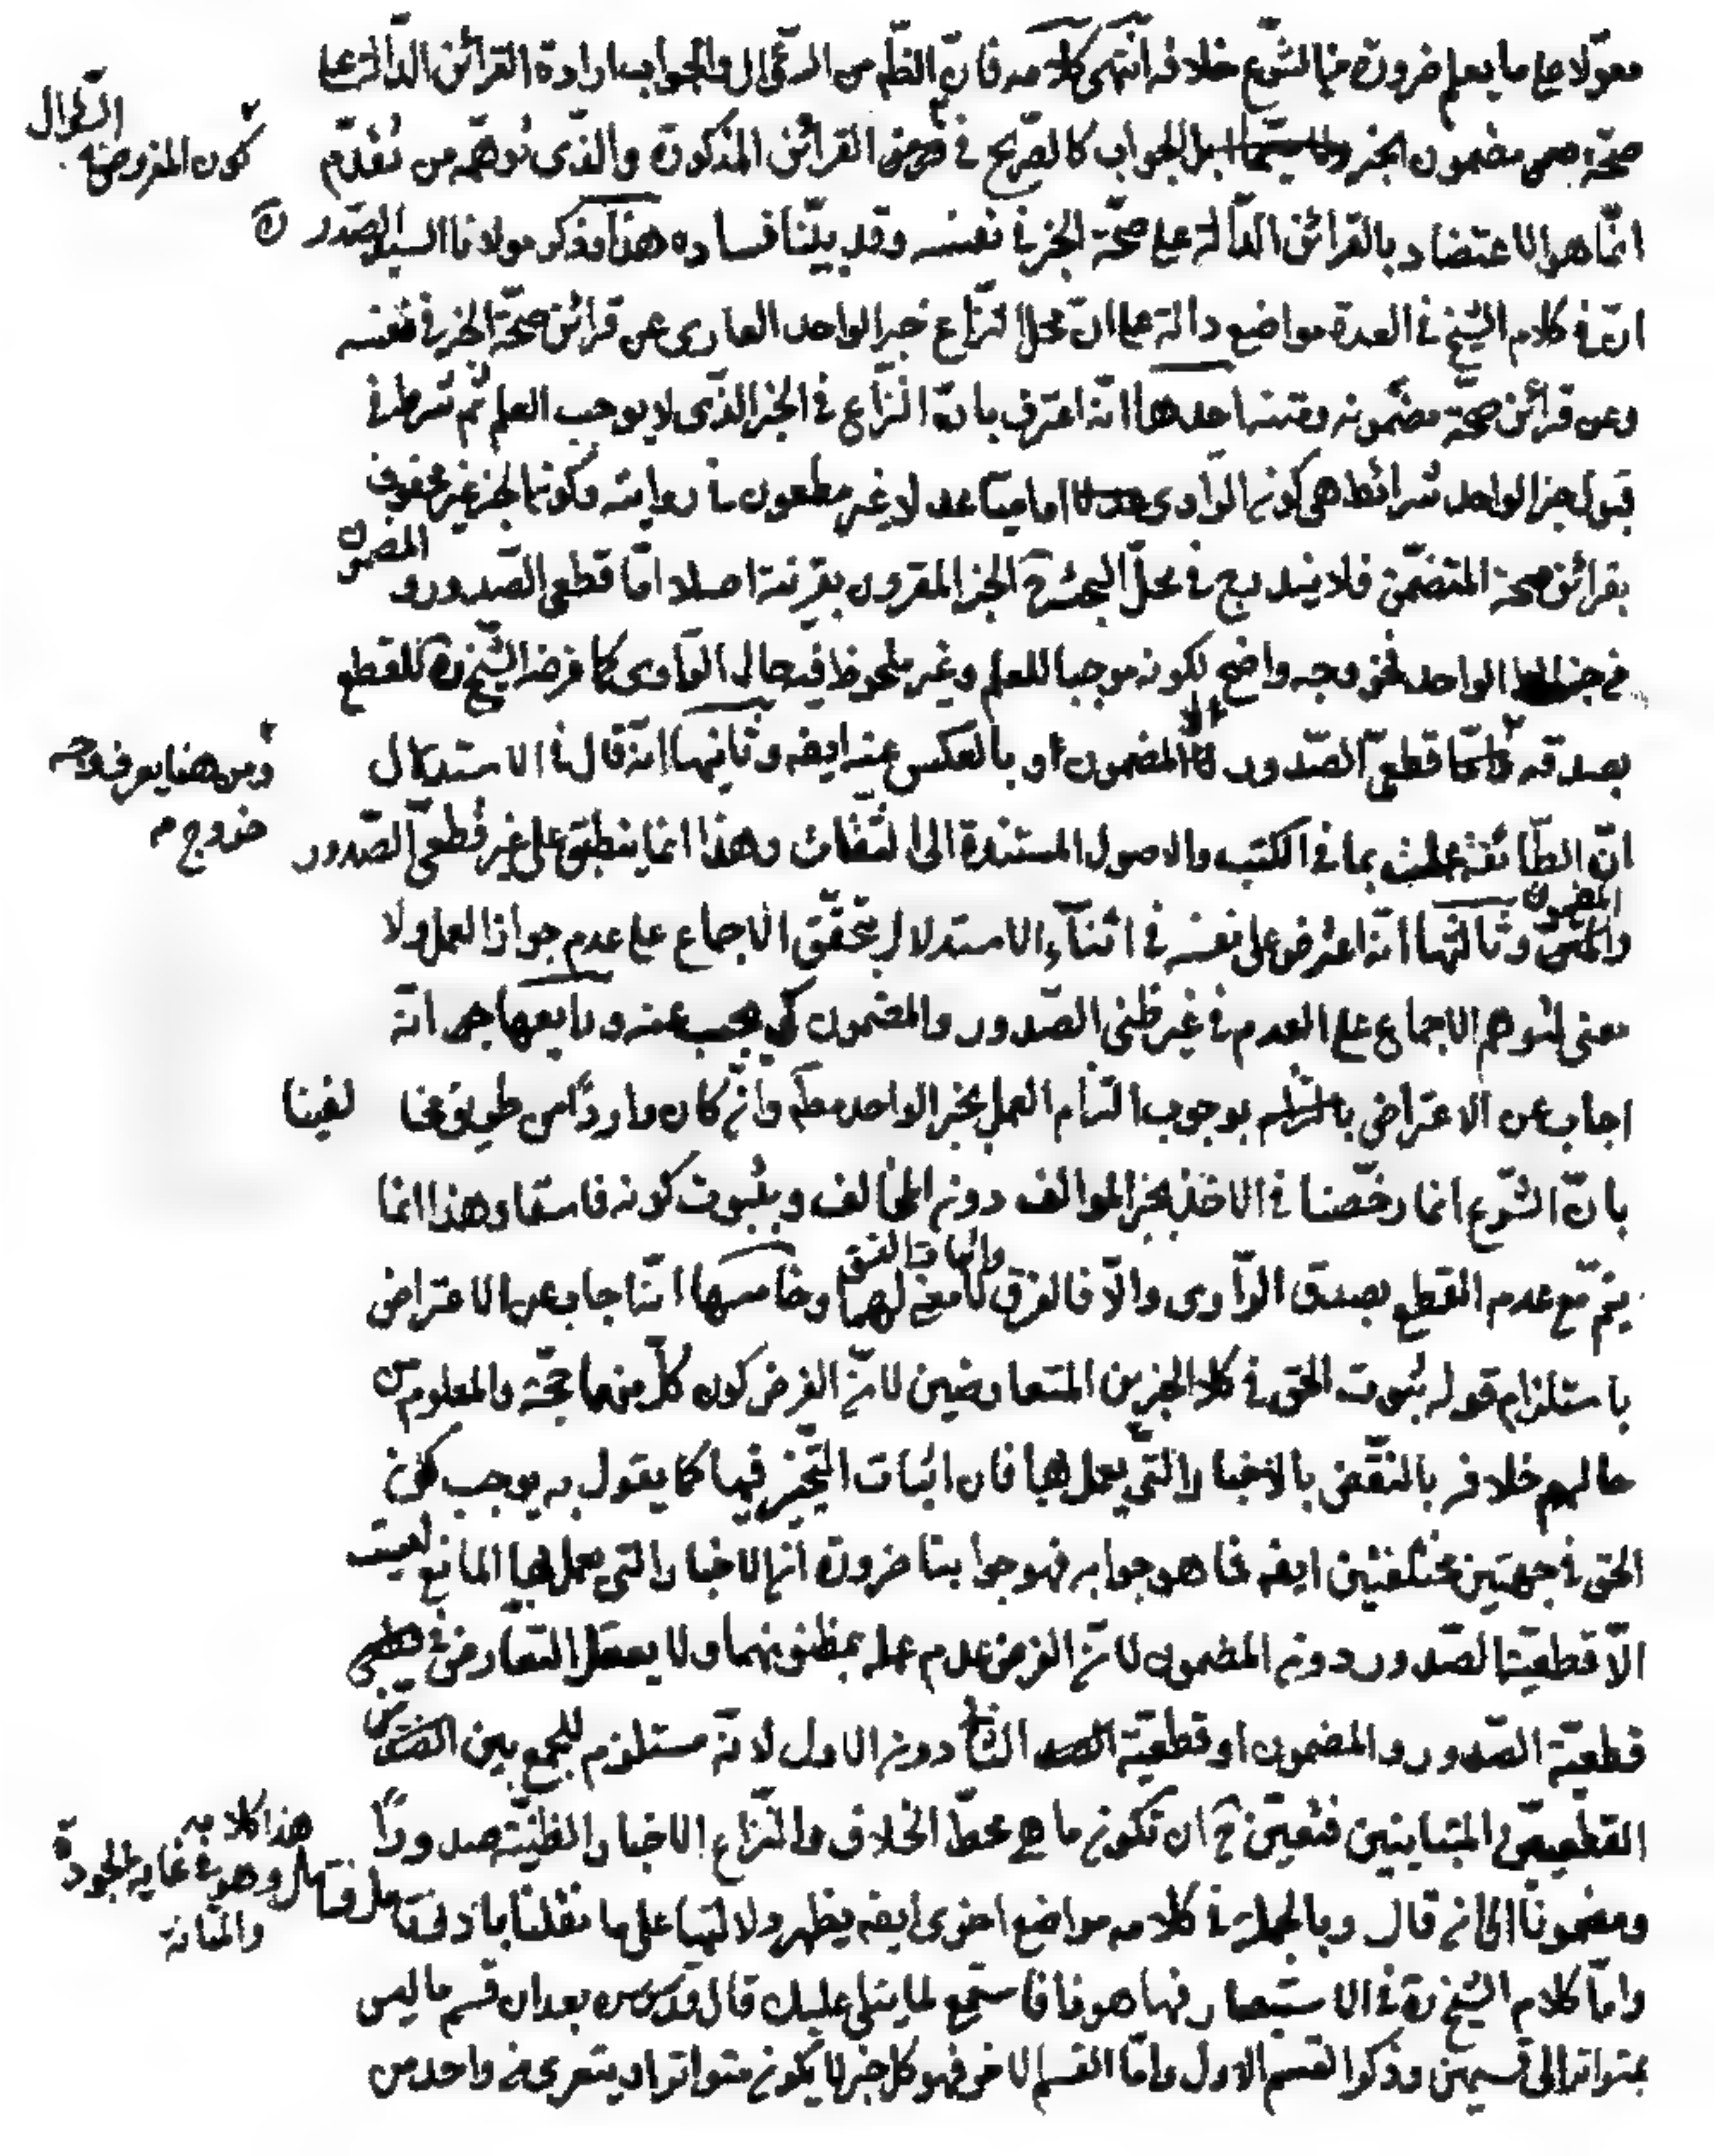 معوّلا على ما يعلم ضرورة من الشرع خلافه انتهى كلامه فانّ الظّاهر من السّؤال والجواب ارادة القرائن الدّالة على
صحّة مضمون الخبر بل الجواب كالصّريح في القرائن المذكورة والذّى توهّمه من تقدّم
كون المفروض في السّؤال
انّما هو الاعتضاد بالقرائن الدّالة على صحّة الخبر في نفسه وقد بيّنا فساده هذا وذكر مولانا السيد الصّدر ره
انّ في كلام الشّيخ في العدة مواضع دالة على انّ محل النزاع خبر الواحد العارى عن قرائن صحّة الخبر في نفسه
وعن قرائن صحّة مضمونه احدها انّه اعترف بانّ النزاع في الخبر الذّى لا يوجب العلم ثم شرط في
قبول خبر الواحد شرائط هي كون الرّاوى اماميّا عدلا غير مطعون في روايته وكون الخبر غير محفوف
بقرائن صحة المتضمّن فلا يندرج في محلّ البحث ح الخبر المقرون بقرينة اصلا امّا قطعى الصّدور والمضمون
من خبر الواحد فخروجه واضح لكونه موجبا للعلم وغير ملحوظ فيه حال الرّاوى كما فرض الشّيخ ره للقطع
بصدقه قطعىّ الصّدور المضمون او بالعكس عنه ايضه وثانيها انّه قال في الاستدلال
ومن هنا يعرف وجه
خروج م
انّ الطّائفة عملت بما في الكتب والاصول المستندة الى الثّقات وهذا انما ينطبق على غير قطعىّ الصّدور
والمضمون وثالثها انّه اعترض على نفسه في اثنآء الاستدلال بتحقّق الاجماع على عدم جواز العمل ولا
معنى لتوهم الاجماع على العدم في غير ظنى الصّدور والمضمون كى يجيب عنه ورابعها انّه
اجاب عن الاعتراض بوجوب التزام العمل بخبر الواحد مطلقا وان كان واردا من طريق مخالفينا
بانّ الشّرع انما رخّصنا في الاخذ بخبر الموالف دون المخالف وبثبوت كونه فاسقا وهذا انما
يتمّ مع عدم القطع بصدق الرّاوى والّا فالفرق لا معنى له وخامسها انّه اجاب عن الاعتراض
باستلزام قوله ثبوت الحق في كلا الخبرين المتعارضين لانّ الفرض كون كلّ منهما حجّة والمعلوم من
حالهم خلافه بالنّقض بالاخبار الّتي يعمل بها فان اثبات التّخيير فيها كما يقول به يوجب كون
الحق في جهتين مختلفتين ايضه فما هو جوابه فهو جوابنا ضرورة انّ الاخبار التي يعمل بها المانع ليست
الّا قطعيّة الصّدور دون المضمون لانّ الفرض عدم عمله بمظنونهما ولا يعقل التّعارض في
قطعيّة الصّدور والمضمون او قطعيّة الثانى دون الاول لانّه مستلزم للجمع بين
القطعيّين المتباينين فتعيّن ح ان تكون ما هي محطّ الخلاف والنّزاع الاخبار الظنّية صدورًا
ومضمونًا الى ان قال وبالجملة في كلامه مواضع اخرى ايضه يظهر دلالتها على ما نقلنا بادنى تامل فتامل
هذا كلامه
وهو في غاية الجودة
والمتانة
وامّا كلام الشّيخ ره في الاستبصار فها هو ذا فاستمع لما يتلى عليك قال قدس سره بعد ان قسم ما ليس
بمتواتر الى قسمين وذكر القسم الاول وامّا القسم الاخر فهو كل خبر لا يكون متواترا ويتعرى من واحد من